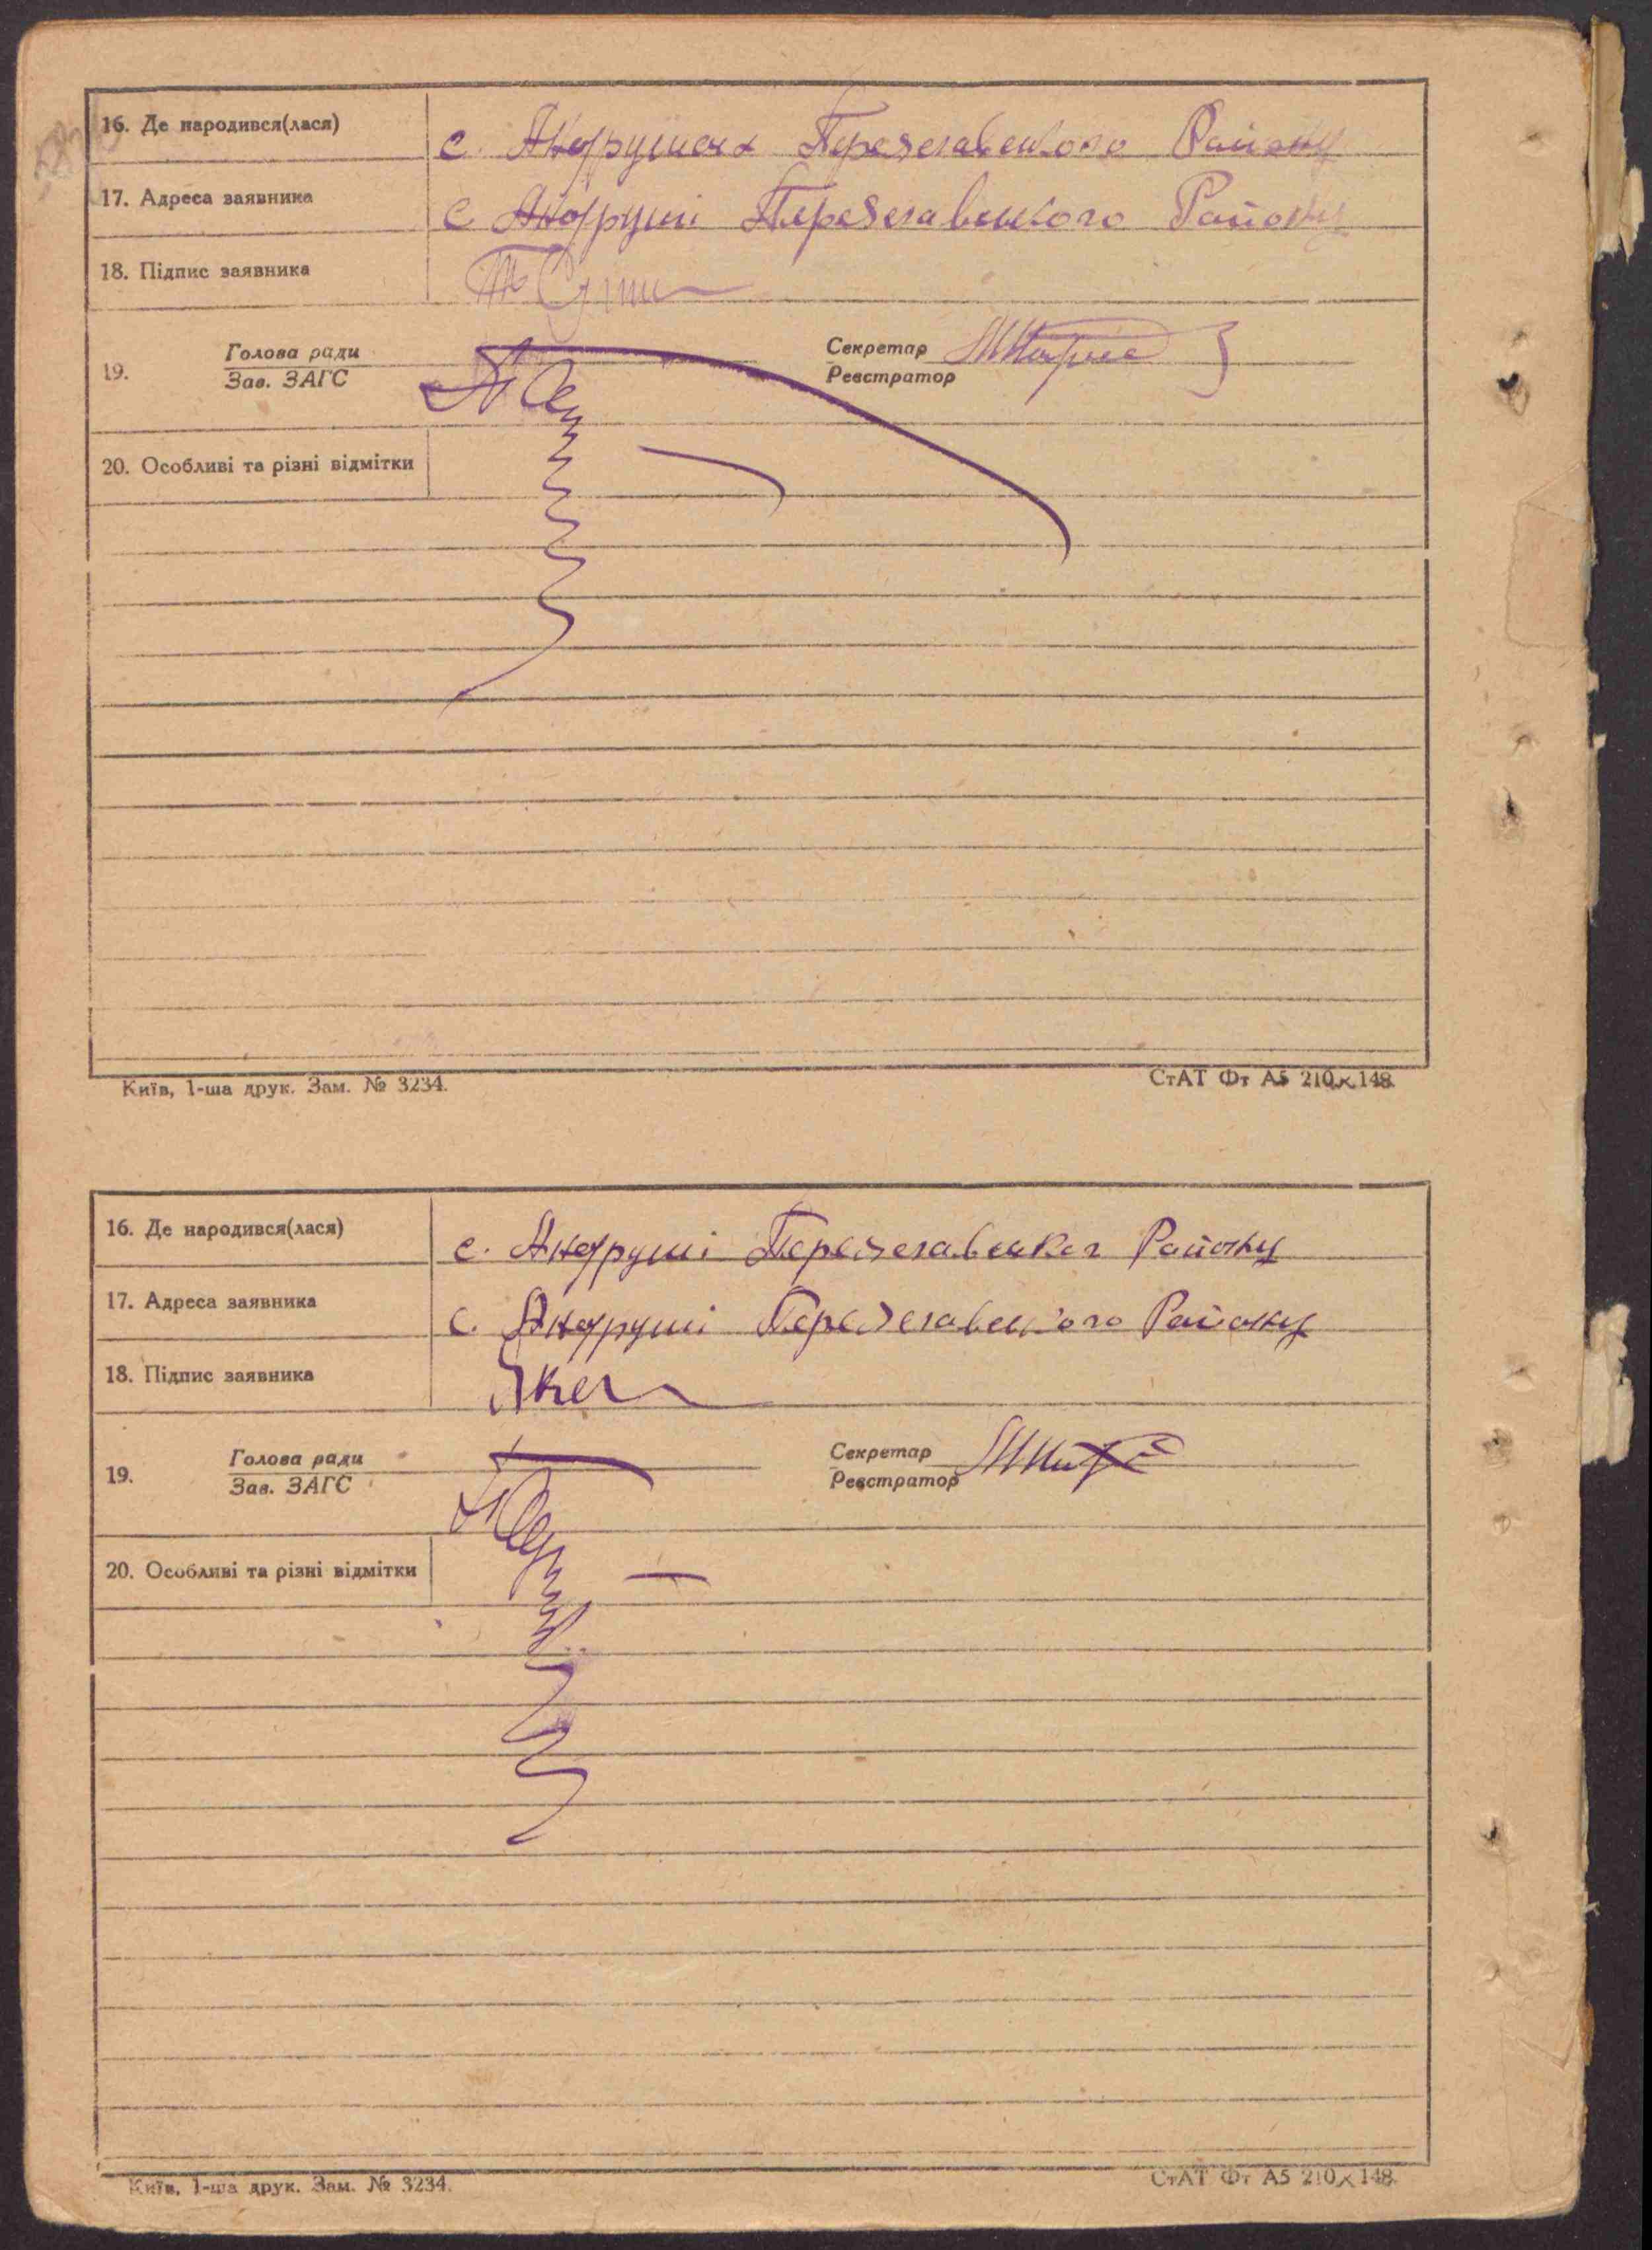 16. Де народився(лася) с. Андрушах Переяславського Району
17. Адреса заявника с Андруші Переяславського Району
18. Підпис заявника
19. Голова ради Секретар
Зав. ЗАГС Реєстратор
20. Особливі та різні відмітки
Київ, 1-ша друк. Зам. № 3234. СтАТ Фт А5 210×148
16. Де народився(лася) с. Андруші Району
17. Адреса заявника с. Андруші Переяславського Району
18. Підпис заявника
19. Голова ради Секретар
Зав. ЗАГС Реєстратор
20. Особливі та різні відмітки
Київ, 1-ша друк. Зам. № 3234. СтАТ Фт А5 210×148